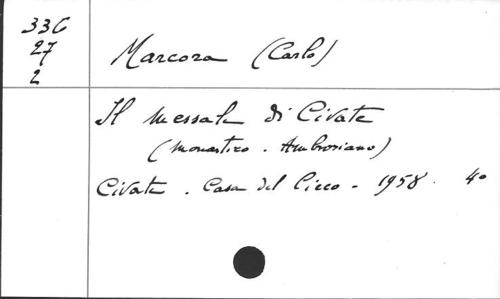 336
27
2
Marcora (Carlo)
Il messale di Civate
(monastico - Ambrosiano)
Civate - Casa del Cieco - 1958. 4°